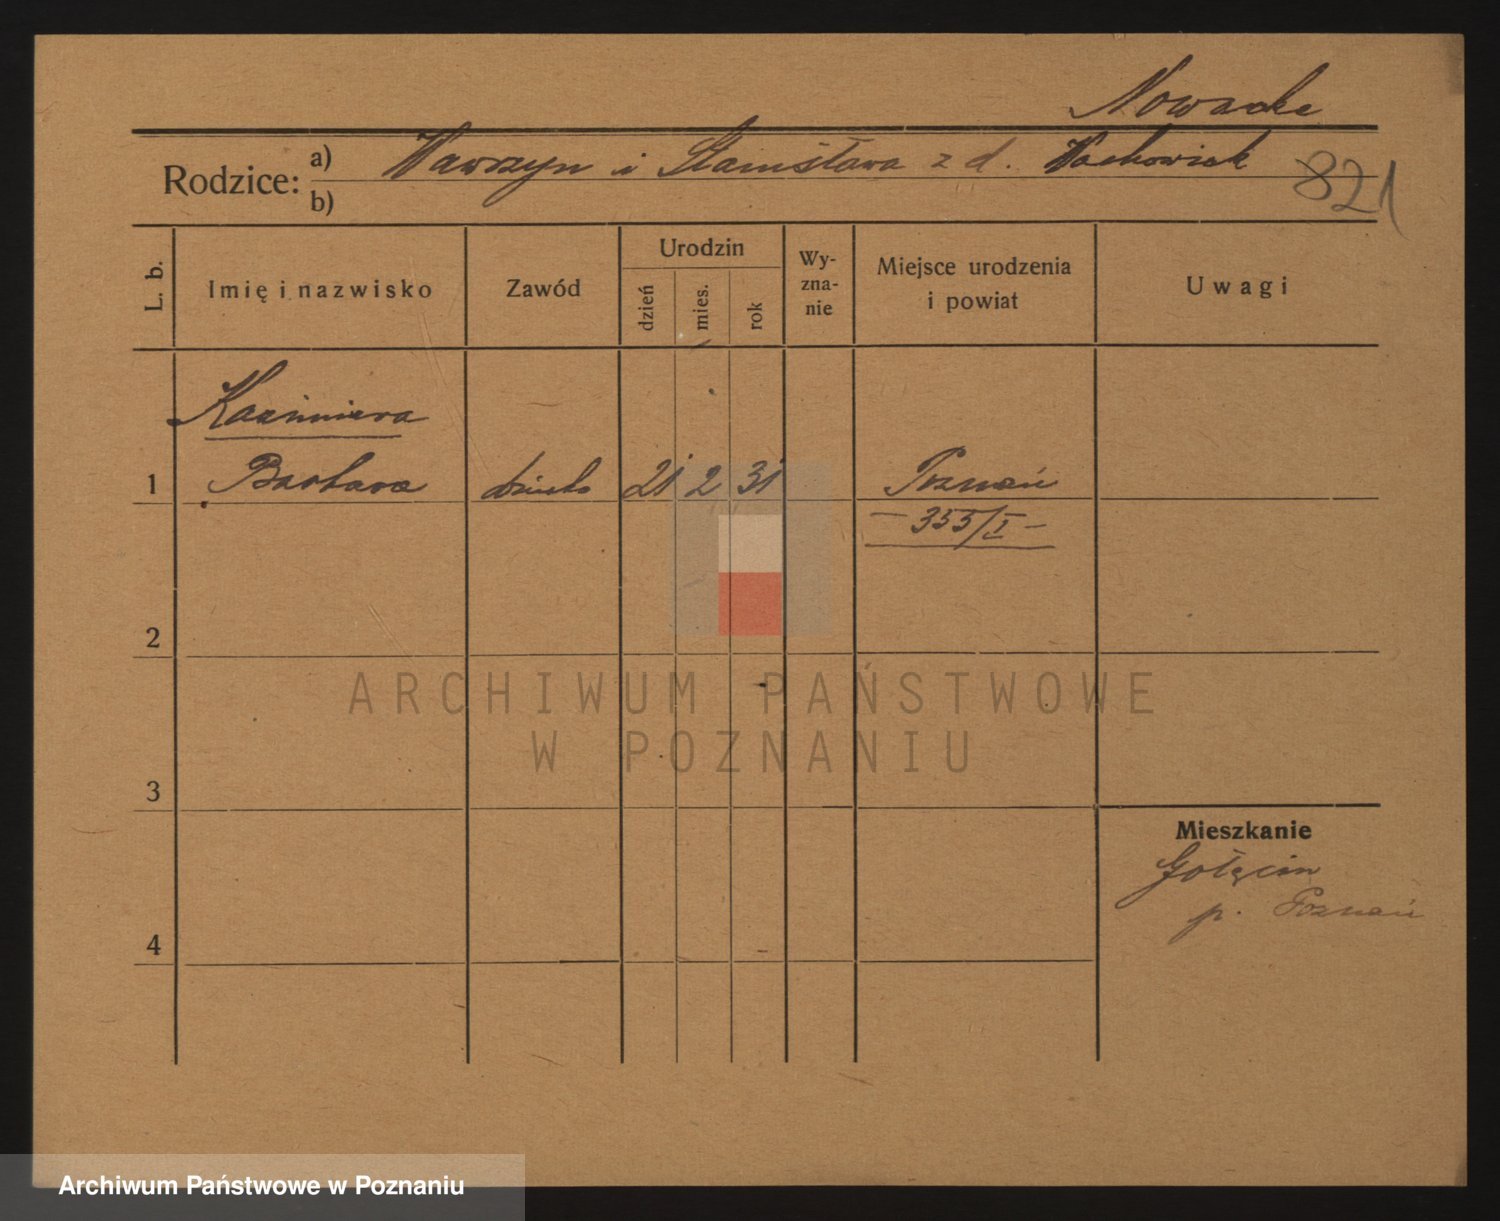 Nowacke
Rodzice: a) Wawrzyn i Stanisława z d. Wachowiak
b)
821
L. b.
Imię i nazwisko
Zawód
Urodzin
dzień
mies.
rok
Wy-
zna-
nie
Miejsce urodzenia
i powiat
Uwagi
Kazimiera
1 Barbara dziecko 21 2 31 Poznań
– 355/I –
2
ARCHIWUM PAŃSTWOWE
W POZNANIU
3
Mieszkanie
Gołęcin
p. Poznań
4
Archiwum Państwowe w Poznaniu